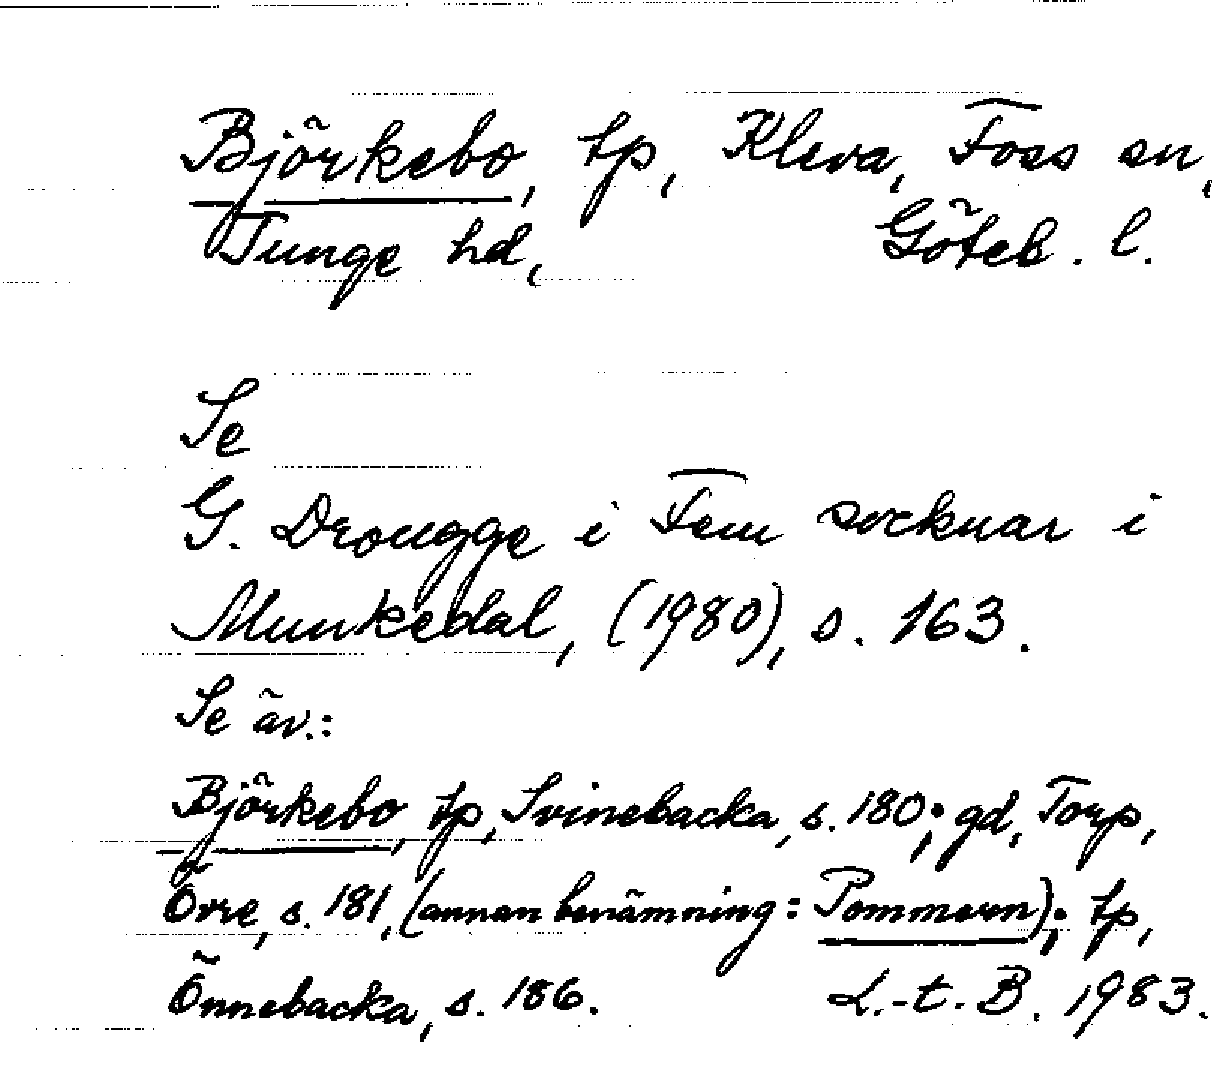 Björkebo, tp, Kleva, Foss sn,
Tunge hd, Göteb. l.
Se
G. Drougge i Fem socknar i
Munkedal, (1980), s. 163.
Se äv.:
Björkebo, tp, Svinebacka, s. 180; gd, Torp,
Örre, s. 181, (annan benämning: Pommern); tp,
Önnebacka, s. 186. L.-t. B. 1983.